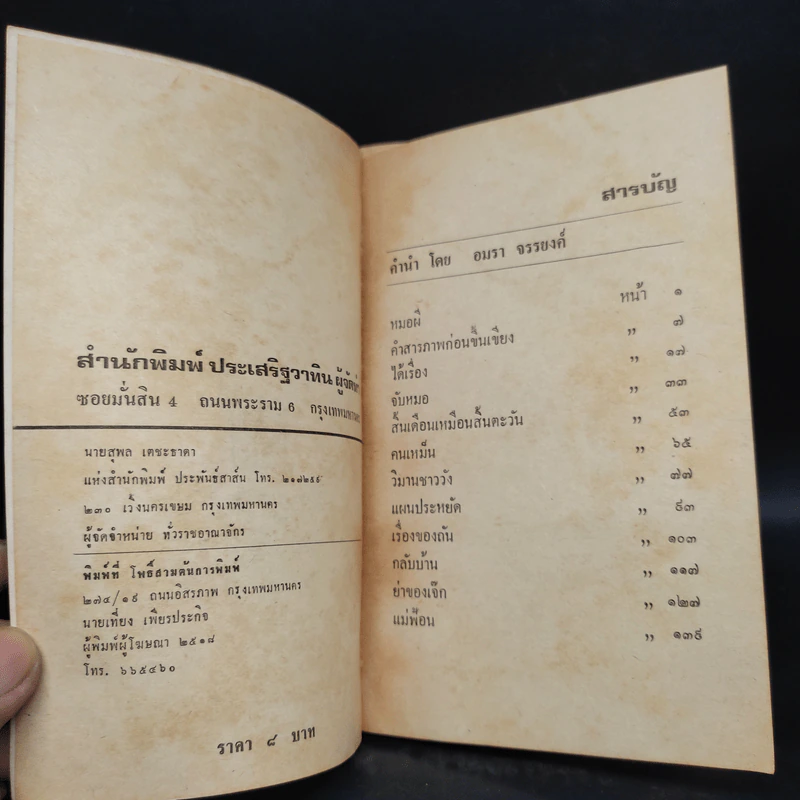 สำนักพิมพ์ ประเสริฐวาทิน
ซอยมั่นสิน 4 ถนนพระราม 6 กรุงเทพมหานคร
นายสุพล เตชะธาดา
แห่งสำนักพิมพ์ ประพันธ์สาส์น โทร. ๒๑๗๒๕๙
๒๓๐ เวิ้งนครเขษม กรุงเทพมหานคร
ผู้จัดจำหน่าย ทั่วราชอาณาจักร
พิมพ์ที่ โพธิ์สามต้นการพิมพ์
๒๗๔/๑๙ ถนนอิสรภาพ กรุงเทพมหานคร
นายเที่ยง เพียรประกิจ
ผู้พิมพ์ผู้โฆษณา ๒๕๑๘
โทร. ๖๖๕๔๖๐
ราคา ๘ บาท
สารบัญ
คำนำ โดย อมรา จรรยงค์
หมอผี หน้า ๑
คำสารภาพก่อนขึ้นเขียง ,, ๗
ได้เรื่อง ,, ๑๗
จับหมอ ,, ๓๓
สิ้นเดือนเหมือนสิ้นตะวัน ,, ๕๓
คนเหม็น ,, ๖๕
วิมานชาววัง ,, ๗๗
แผนประหยัด ,, ๙๓
เรื่องของถัน ,, ๑๐๓
กลับบ้าน ,, ๑๑๗
ย่าของเจ๊ก ,, ๑๒๗
แม่ฟ้อน ,, ๑๓๙